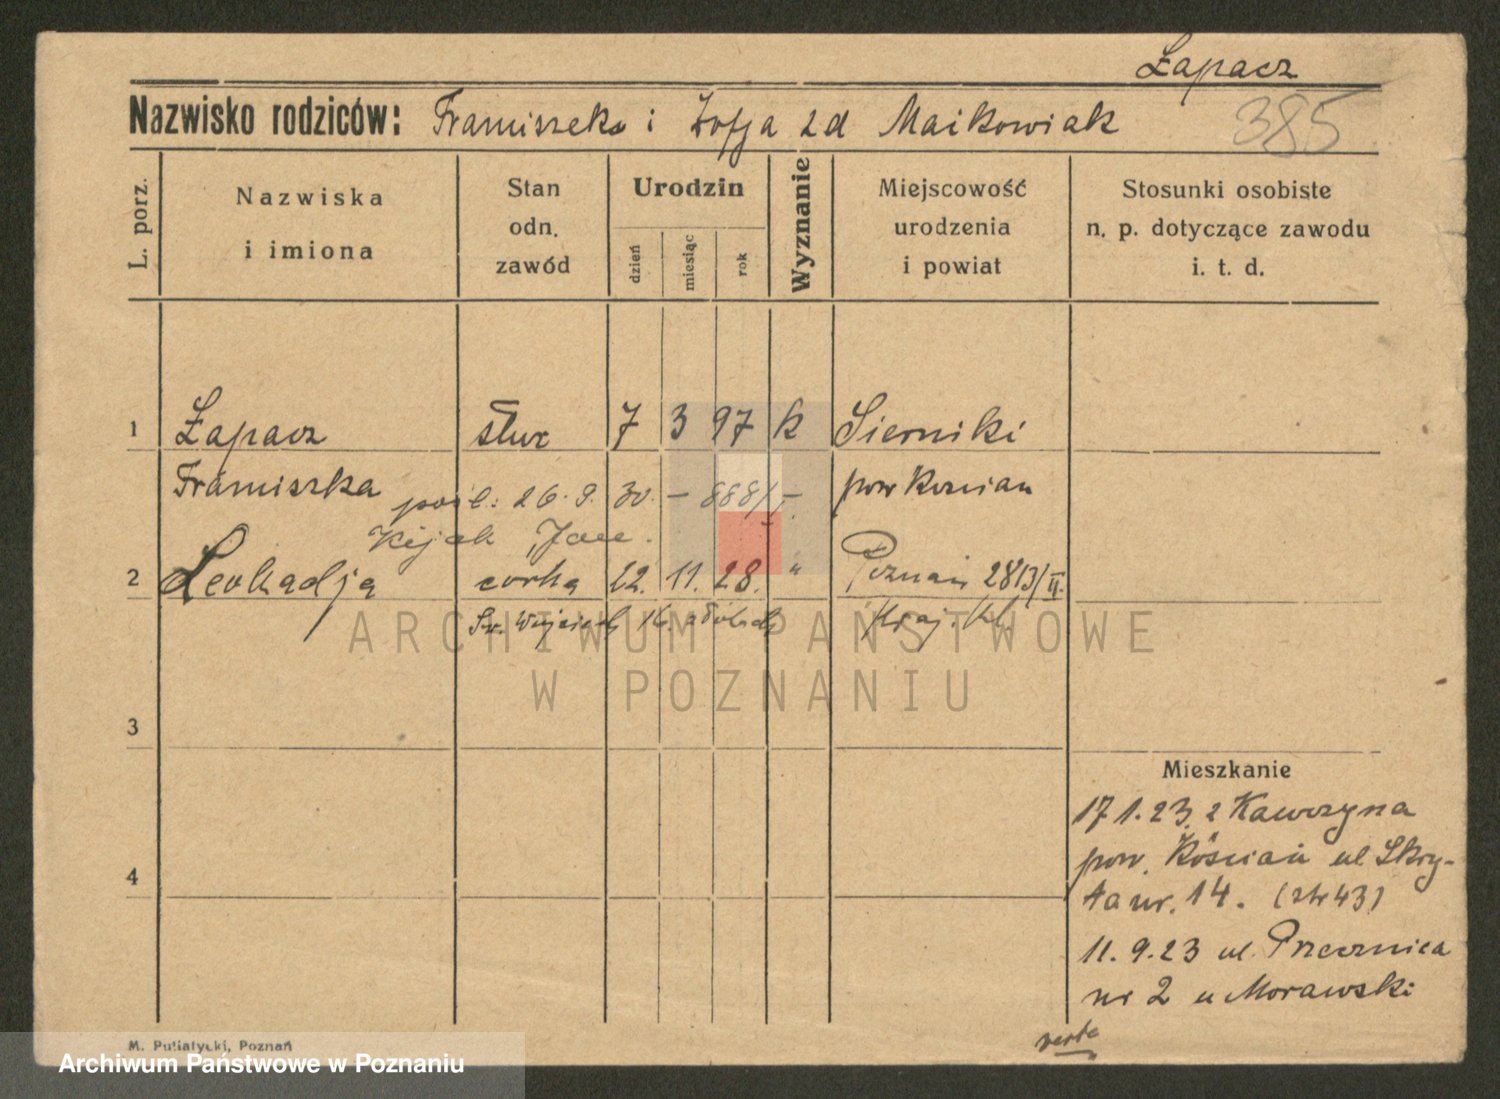 Łapacz
385
Nazwisko rodziców: Franciszek i Zofja zd Maikowiak
L. porz.
Nazwiska
i imiona
Stan
odn.
zawód
Urodzin
dzień
miesiąc
rok
Wyznanie
Miejscowość
urodzenia
i powiat
Stosunki osobiste
n. p. dotyczące zawodu
i. t. d.
1 Łapacz służ 7 3 97 k Sierniki
Franciszka pow Kościan
pośl. 26. 9. 30. – 888/I.
Kijak Jan.
2 Leokadja corka 12. 11. 28. " Poznań 2813/II.
Św. Wojciech
3
4
Mieszkanie
17 1. 23. z Kawczyna
pow. Kościan ul Skry-
ta nr. 14. (str 43)
11. 9. 23 ul. Przecznica
nr 2 u Morawski
verte
M. Putiatycki, Poznań
ARCHIWUM PAŃSTWOWE
W POZNANIU
Archiwum Państwowe w Poznaniu